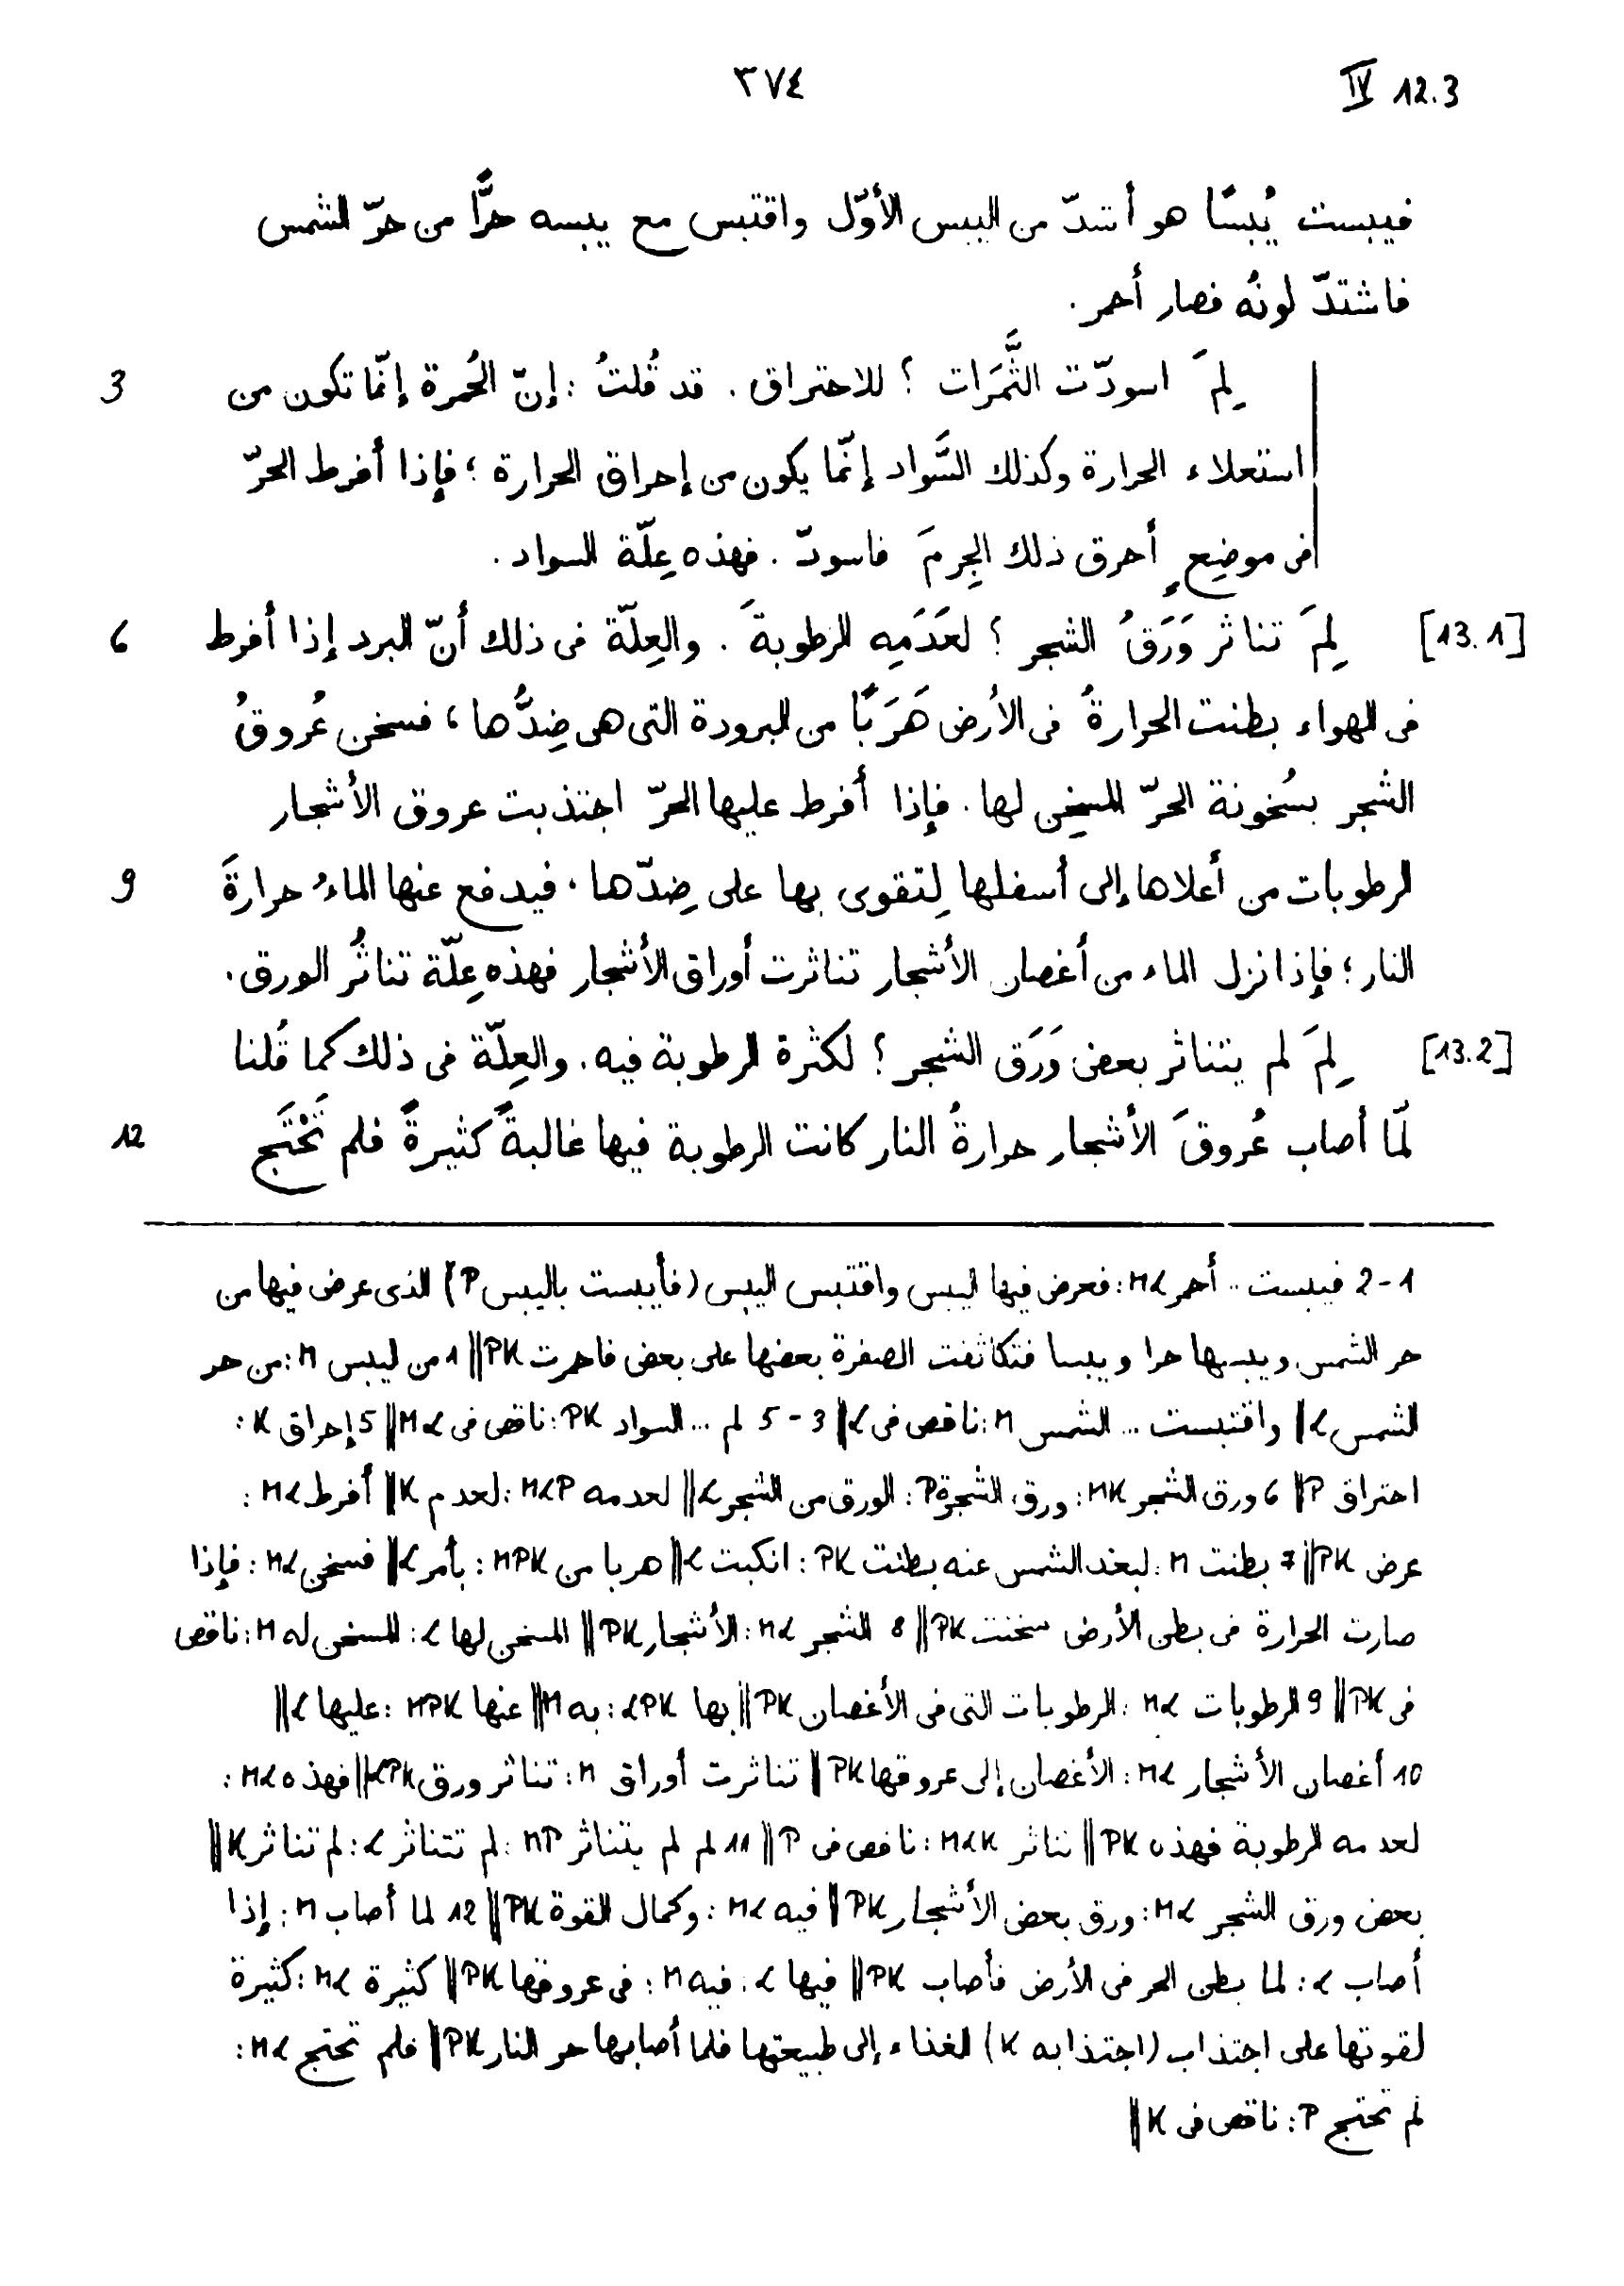 IV 12.3
٣٧٤
فيبست يُبسًا هو أشدّ من اليبس الأوّل واقتبس مع يبسه حرًّا من حرّ الشمس
فاشتدّ لونُه فصار أحمر.
3 لِمَ اسودّت الثَّمَرات ؟ للاحتراق . قد قُلتُ : إنّ الحُمرة إنّما تكون من
استعلاء الحرارة وكذلك السَّواد إنّما يكون من إحراق الحرارة ؛ فإذا أفرط الحرّ
فى موضِعٍ أحرق ذلك الجِرمَ فاسودّ . فهذه عِلّة السواد .
[13.1] لِمَ تناثر وَرَقُ الشجر ؟ لعَدَمِه الرطوبةَ . والعِلّة فى ذلك أنّ البرد إذا أفرط 6
فى الهواء بطنت الحرارةُ فى الأرض هَرَبًا من البرودة التى هى ضِدُّها ، فسخن عُروقُ
الشجر بسُخونة الحرّ المسخِن لها . فإذا أفرط عليها الحرّ اجتذبت عروق الأشجار
الرطوبات من أعلاها إلى أسفلها لِتقوى بها على ضِدّها . فيدفع عنها الماءُ حرارةَ 9
النار ؛ فإذا نزل الماء من أغصان الأشجار تناثرت أوراق الأشجار فهذه عِلّة تناثُر الورق .
[13.2] لِمَ لم يتناثر بعض وَرَق الشجر ؟ لكثرة الرطوبة فيه . والعِلّة فى ذلك كما قُلنا
لمّا أصاب عُروقَ الأشجار حرارةُ النار كانت الرطوبة فيها غالبةً كثيرةً فلم تَحْتَج 12
1-2 فيبست .. أحمر ML : فعرض فيها اليبس واقتبس اليبس (فأيبست باليبس P) الذى عرض فيها من
حر الشمس ويبسها حرا ويبسا فتكاثفت الصفرة بعضها على بعض فاحمرت PK || 1 من ليبس M : من حر
الشمس L || واقتبست ... الشمس M : ناقص فى L || 3-5 لم ... السواد PK : ناقص فى ML || 5 إحراق K :
احتراق P || 6 ورق الشجر MK : ورق الشجرة P : الورق من الشجر L || لعدمه MLP : لعدم K || أفرط ML :
عرض PK || 7 بطنت M : لبعد الشمس عنه بطنت PK : انكبت L || هربا من MPK : بأمر L || فسخن ML : فإذا
صارت الحرارة فى بطن الأرض سخنت PK || 8 الشجر ML : الأشجار PK || المسخن لها L : المسخن له M : ناقص
فى PK || 9 الرطوبات ML : الرطوبات التى فى الأغصان PK || بها LPK : به M || عنها MPK : عليها L ||
10 أغصان الأشجار ML : الأغصان إلى عروقها PK || تناثرت أوراق M : تناثر ورق LPK || فهذه ML :
لعدمه الرطوبة فهذه PK || تناثر MLK : ناقص فى P || 11 لم لم يتناثر MP : لم تتناثر L : لم تناثر K ||
بعض ورق الشجر ML : ورق بعض الأشجار PK || فيه ML : وكمال القوة PK || 12 لما أصاب M : إذا
أصاب L : لما بطن الحر فى الأرض فأصاب PK || فيها L : فيه M : فى عروقها PK || كثيرة ML : كثيرة
لقوتها على اجتذاب (اجتذابه K) الغذاء إلى طبيعتها فلما أصابها حر النار PK || فلم تحتج ML :
لم تحتج P : ناقص فى K ||